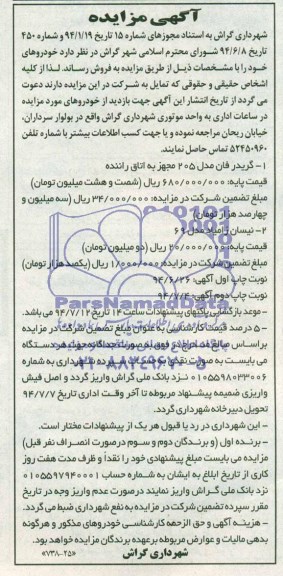 آگهی مزایده
شهرداری گراش به استناد مجوزهای شماره ۱۵ تاریخ ۹۴/۱/۱۹ و شماره ۴۵۰
تاریخ ۹۴/۶/۸ شورای محترم اسلامی شهر گراش در نظر دارد خودروهای
خود را با مشخصات ذیل از طریق مزایده به فروش رساند. لذا از کلیه
اشخاص حقیقی و حقوقی که تمایل به شرکت در این مزایده دارند دعوت
می گردد از تاریخ انتشار این آگهی جهت بازدید از خودروهای مورد مزایده
در ساعات اداری به واحد موتوری شهرداری گراش واقع در بولوار سرداران،
خیابان ریحان مراجعه نموده و یا جهت کسب اطلاعات بیشتر با شماره تلفن
۵۲۴۵۰۹۶۰ تماس حاصل نمایند.
۱- گریدر فان مدل ۲۰۵ مجهز به اتاق راننده
قیمت پایه: ۶۸۰/۰۰۰/۰۰۰ ریال (شصت و هشت میلیون تومان)
مبلغ تضمین شرکت در مزایده: ۳۴/۰۰۰/۰۰۰ ریال (سه میلیون و
چهارصد هزار تومان)
۲- نیسان زامیاد مدل ۶۹
قیمت پایه: ۲۰/۰۰۰/۰۰۰ ریال (دو میلیون تومان)
مبلغ تضمین شرکت در مزایده: ۱/۰۰۰/۰۰۰ ریال (یکصد هزار تومان)
نوبت چاپ اول آگهی: ۹۴/۶/۲۶
نوبت چاپ دوم آگهی: ۹۴/۷/۴
- موعد بازگشایی پاکتهای پیشنهادات ساعت ۱۴ تاریخ ۹۴/۷/۱۲ می باشد.
- ۵ درصد قیمت کارشناسی به عنوان مبلغ تضمین شرکت در مزایده
براساس مبالغ مندرج در فوق به صورت جداگانه جهت هر دستگاه
می بایست به صورت نقدی به حساب سپرده شهرداری به شماره
۰۱۰۵۵۹۸۰۳۳۰۰۶ نزد بانک ملی گراش واریز گردد و اصل فیش
واریزی ضمیمه پیشنهاد مربوطه تا آخر وقت اداری تاریخ ۹۴/۷/۷
تحویل دبیرخانه شهرداری گردد.
- این شهرداری در رد یا قبول هر یک از پیشنهادات مختار است.
- برنده اول (و برندگان دوم و سوم در صورت انصراف نفر قبل)
مزایده می بایست مبلغ پیشنهادی خود را نقداً و ظرف مدت هفت روز
کاری از تاریخ ابلاغ به ایشان به شماره حساب ۰۱۰۵۵۹۷۹۴۰۰۰۱
نزد بانک ملی گراش واریز نمایند در صورت عدم واریز وجه در تاریخ
مقرر سپرده تضمین شرکت در مزایده به نفع شهرداری ضبط می گردد.
- هزینه آگهی و حق الزحمه کارشناسی خودروهای مذکور و هرگونه
بدهی مالیات و عوارض مربوطه برعهده برندگان مزایده خواهد بود.
شهرداری گراش
«۷۳۸-۲۵»
ParsNamadData
۰۲۱-۸۸۳۴۹۶۷۰-۵